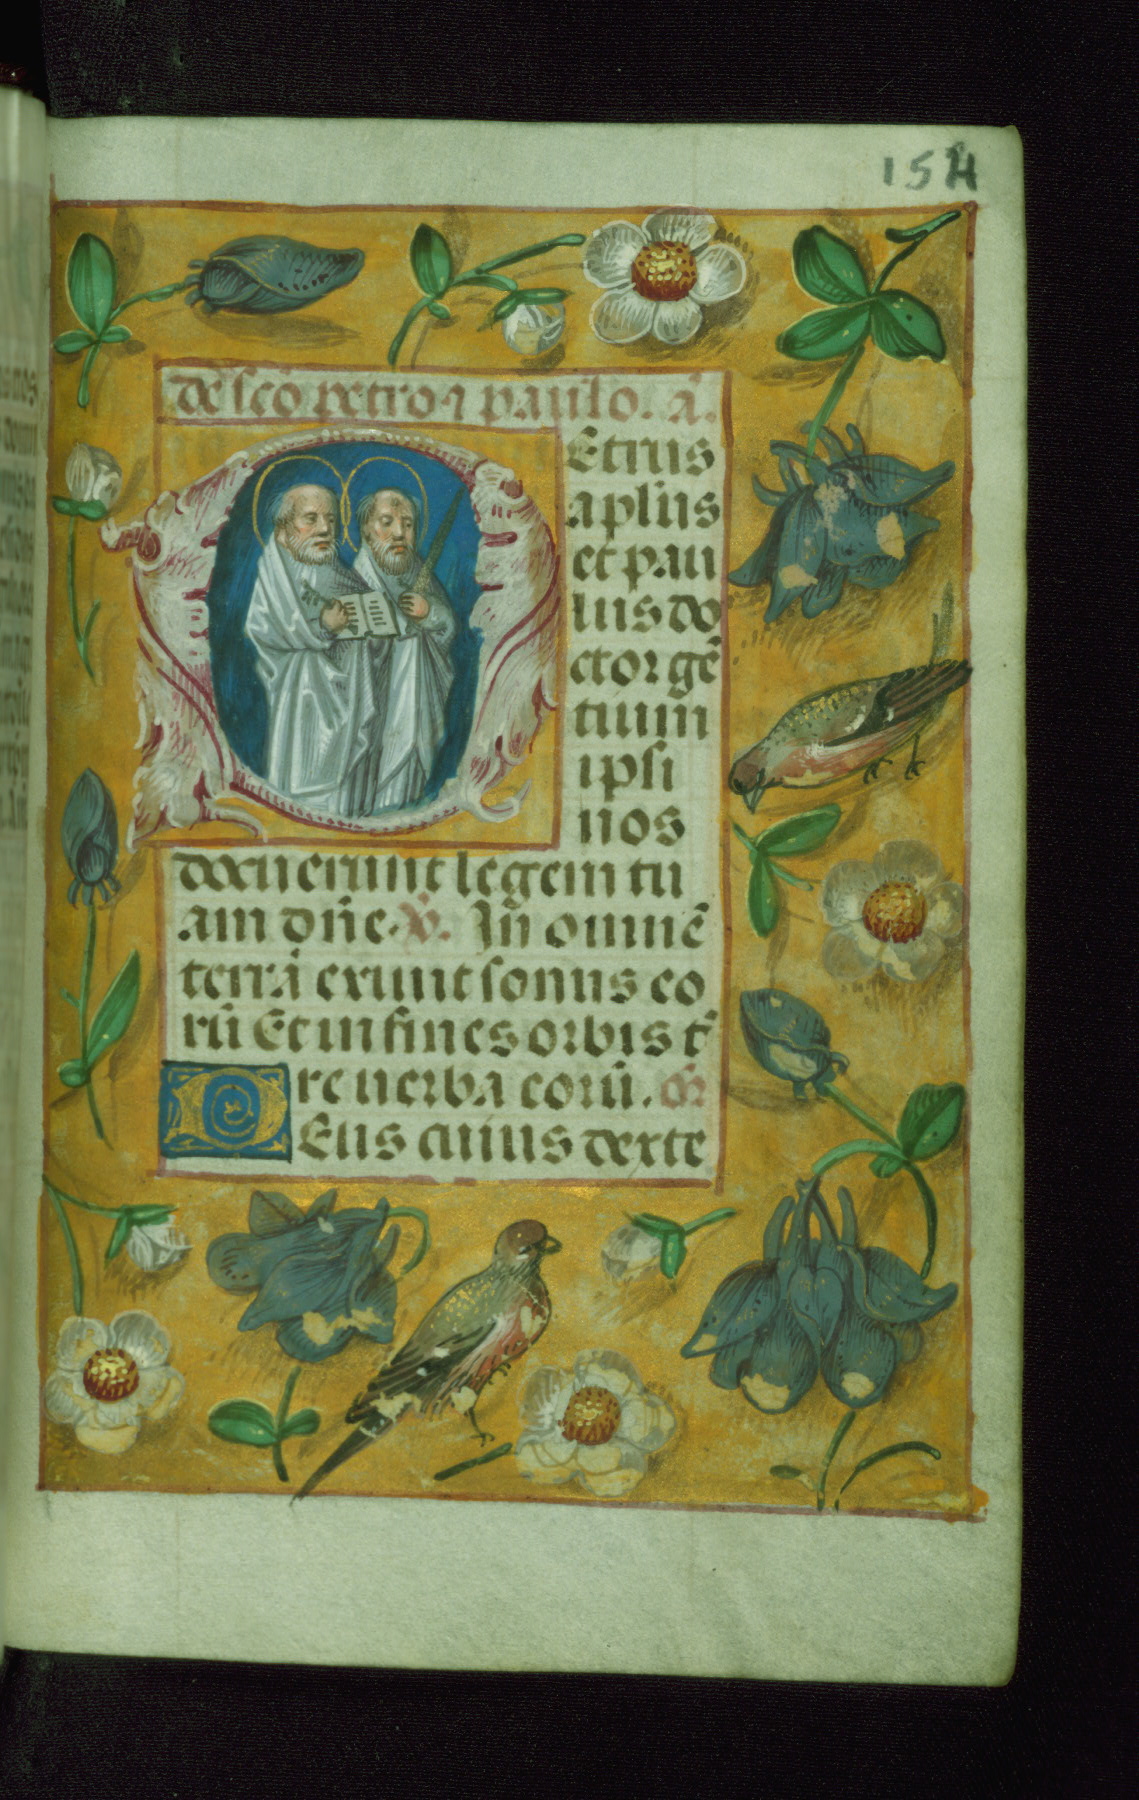 154
de sco petro ⁊ paulo. a͞.
Etrus
aplus
et pau
lus do
ctor gē
tium
ipsi
nos
docuerunt legem tu
am dn̄e. v̄. In omnē
terrā exiunt sonus eo
rū Et in fines orbis t̄
re uerba eorū. or̄
Eus cuius dexte